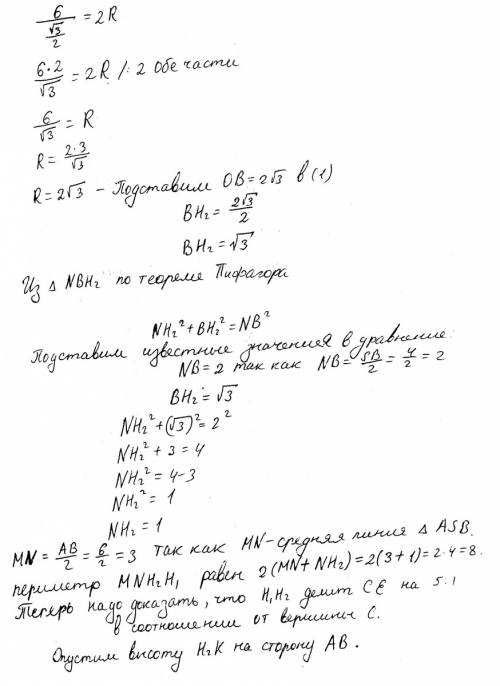 6 / (√3/2) = 2R
6·2/√3 = 2R /:2 Обе части
6/√3 = R
R = 2·3/√3
R = 2√3 – Подставим OB = 2√3 в (1)
BH₂ = 2√3/2
BH₂ = √3
Из △ NBH₂ по теореме Пифагора
NH₂² + BH₂² = NB²
Подставим известные значения в уравнение:
NB = 2 так как NB = SB/2 = 4/2 = 2
BH₂ = √3
NH₂² + (√3)² = 2²
NH₂² + 3 = 4
NH₂² = 4-3
NH₂² = 1
NH₂ = 1
MN = AB/2 = 6/2 = 3 так как MN – средняя линия △ ASB.
периметр MNH₂H₁ равен 2(MN + NH₂) = 2(3+1) = 2·4 = 8.
Теперь надо доказать, что H₁H₂ делит CE на 5:1
в соотношении от вершины C.
Опустим высоту H₂K на сторону AB.